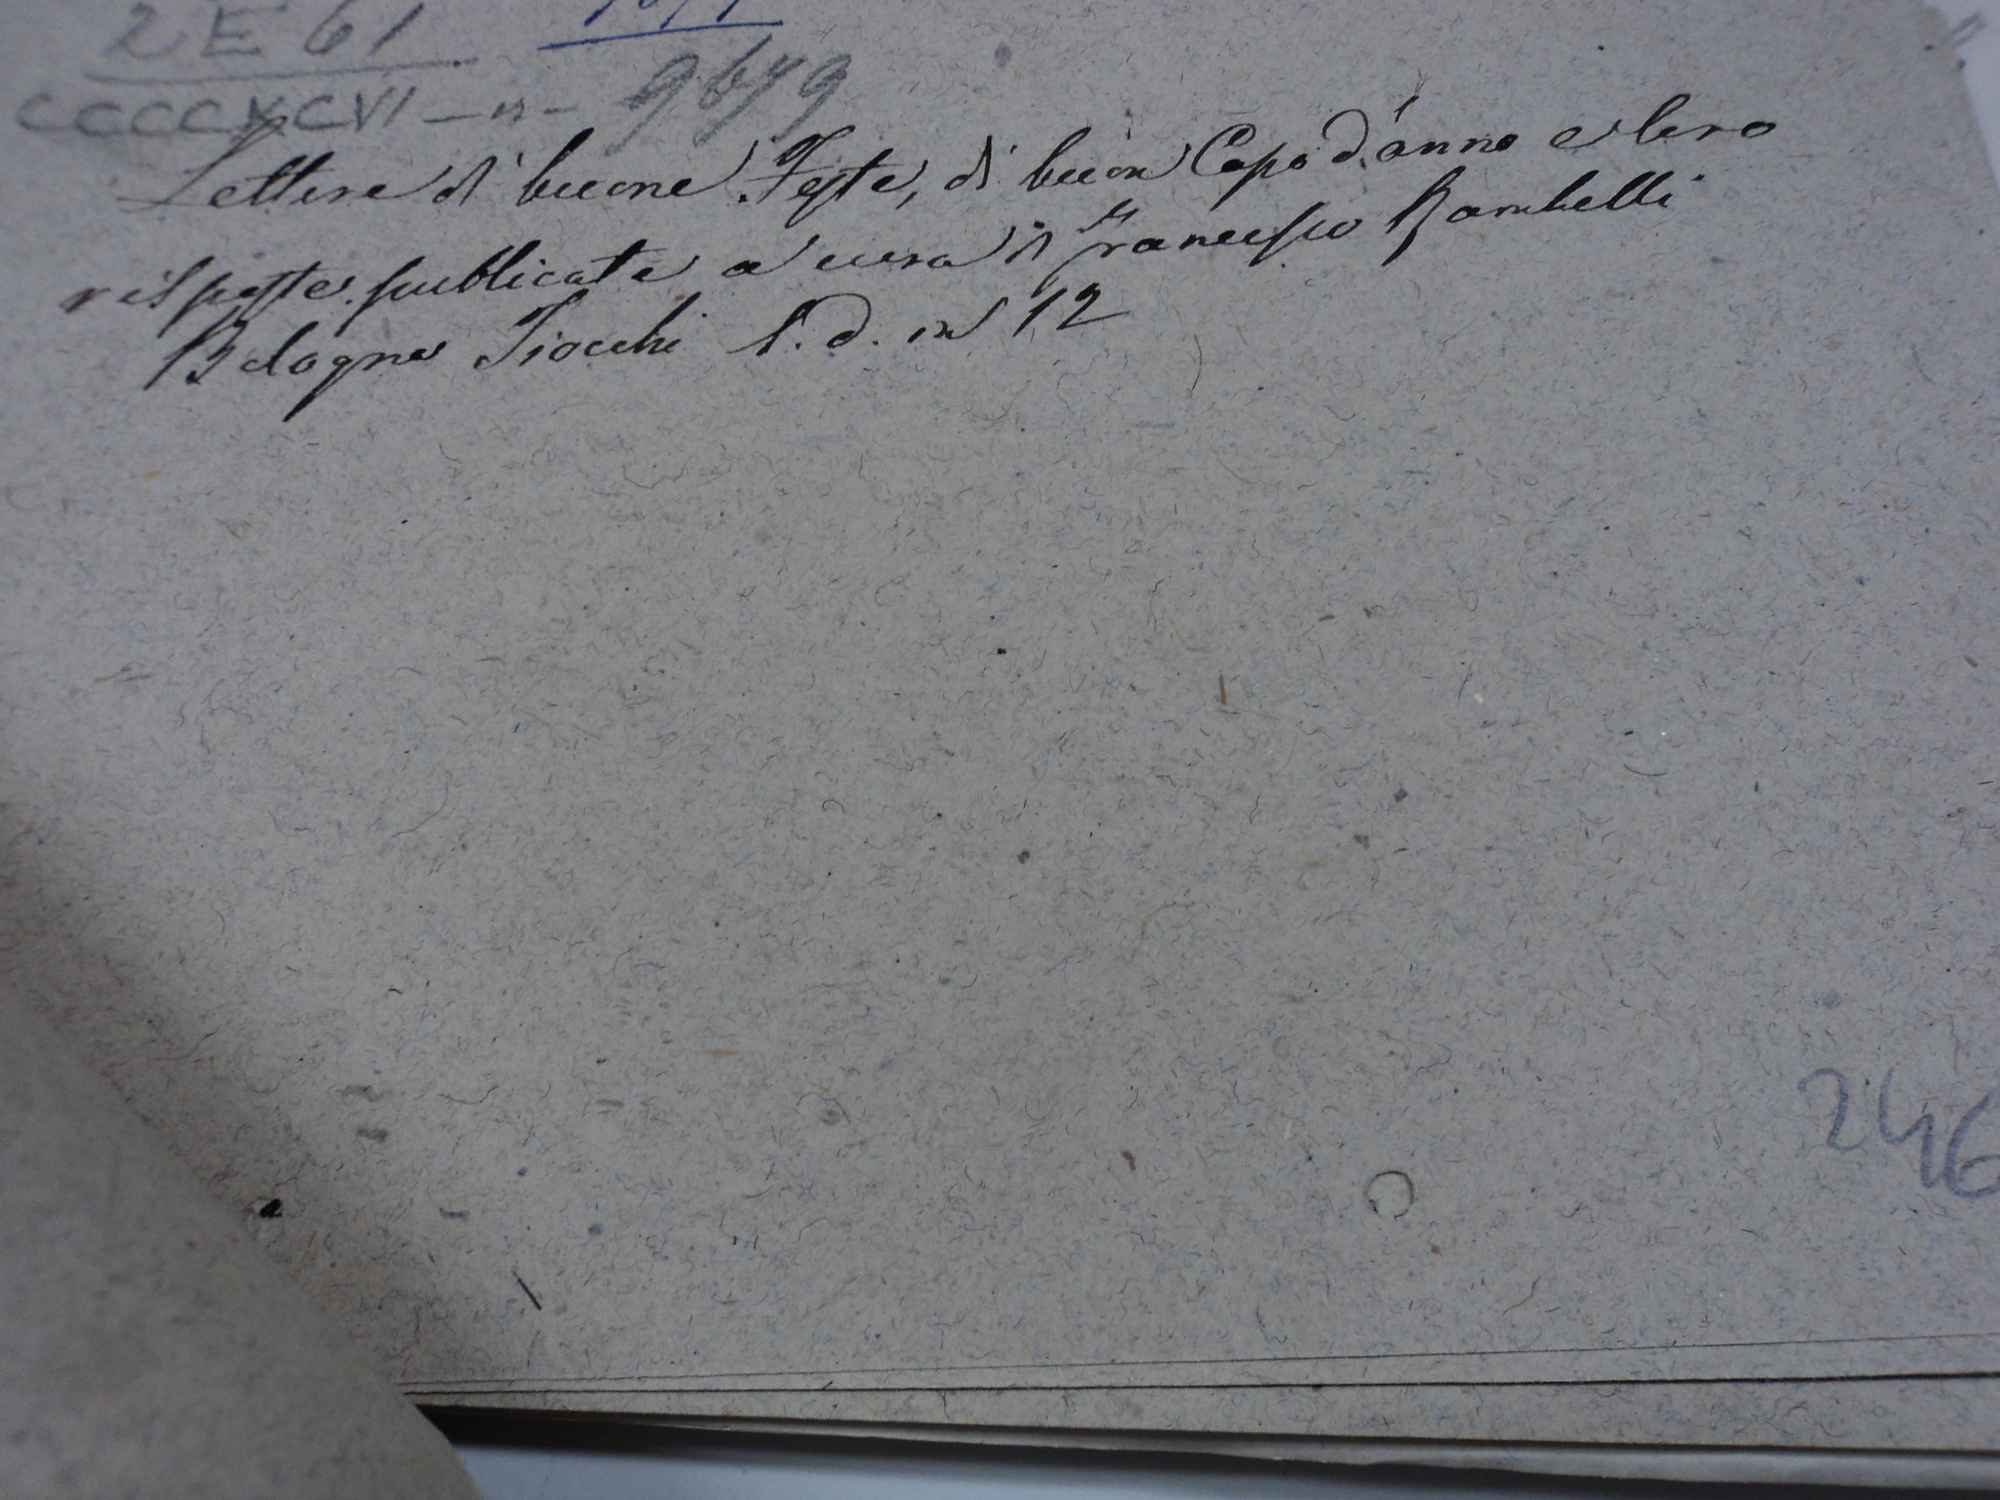 2 E 61
CCCCXCVI – n – 9679
Lettere di buone Feste, di buon Capo d'anno e loro
risposte publicate a cura di Francesco Rambelli
Bologna Tiocchi s. d. in 12
246